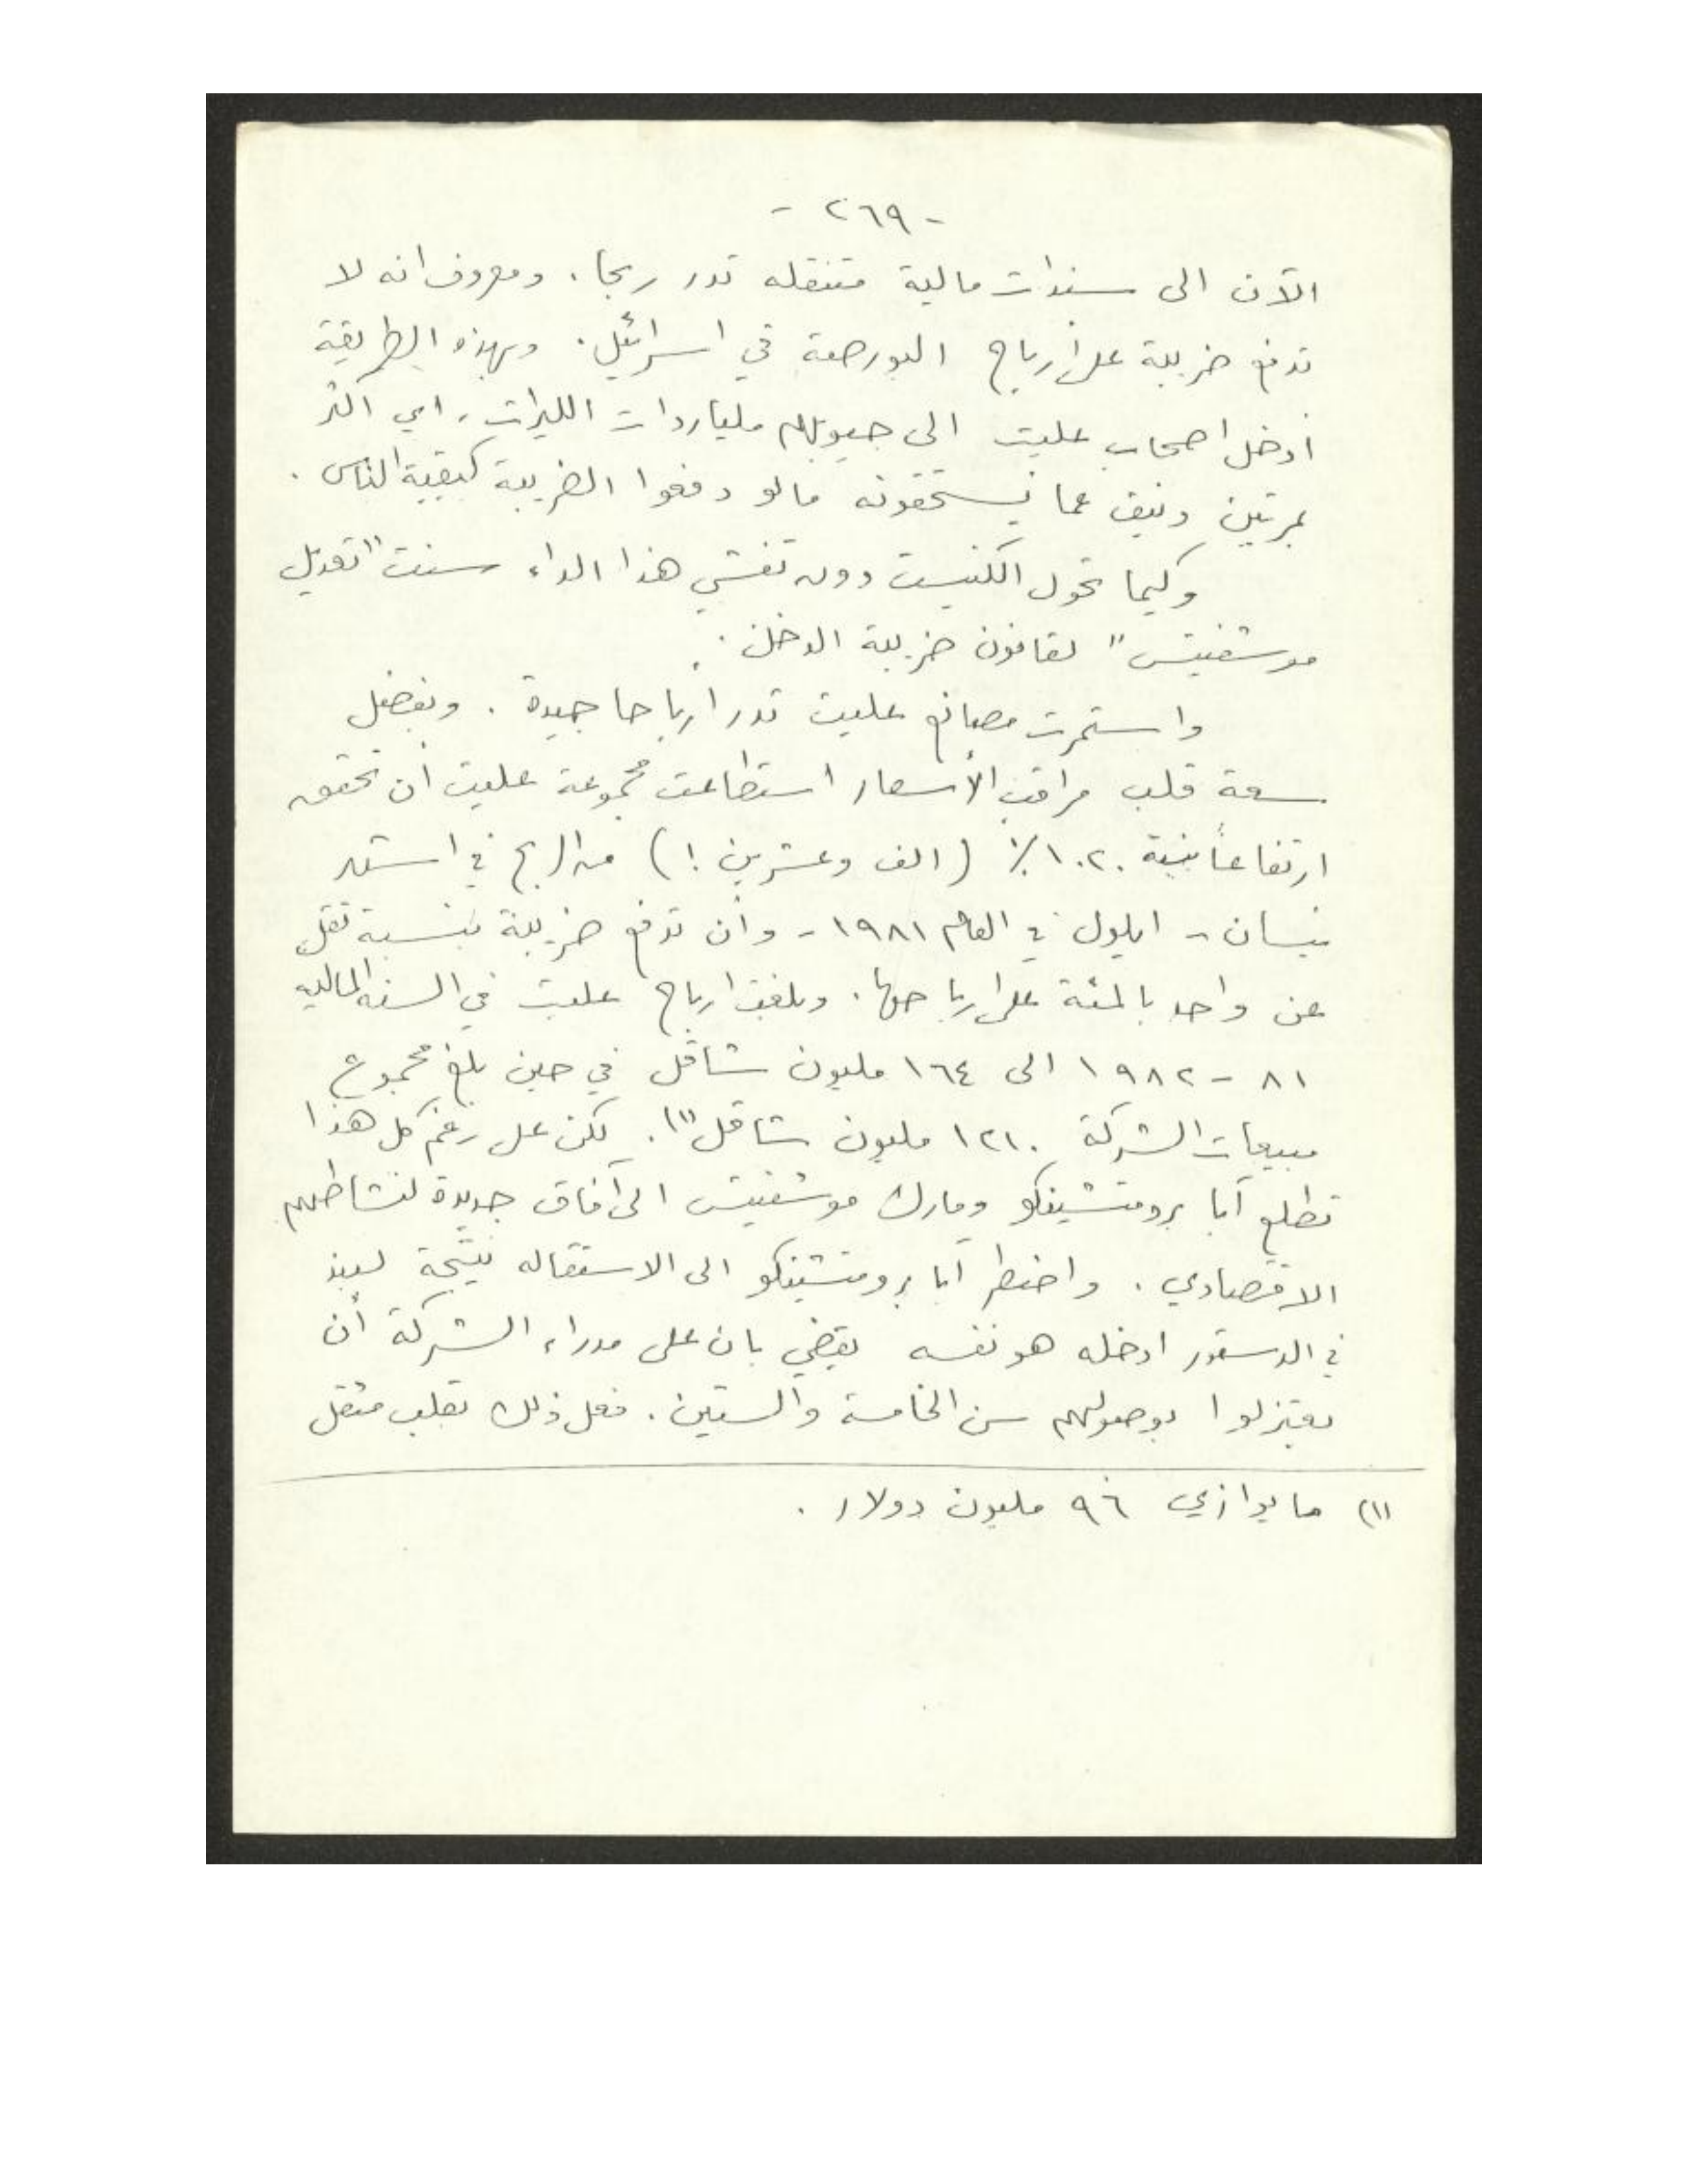 - ٢٦٩ -
الآن الى سندات مالية متنقله تدر ربحا. ومعروف انه لا
تدفع ضريبة على أرباح البورصة في اسرائيل. وبهذه الطريقة
أدخل اصحاب عليت الى جيوبهم مليارات الليرات، اي اكثر
بمرتين ونيف عما يستحقونه مالو دفعوا الضريبة كبقية الناس.
وكيما تحول الكنيست دون تفشي هذا الداء سنت "تعديل
موشفيتس" لقانون ضريبة الدخل.
واستمرت مصانع عليت تدر أرباحا جيدة. وبفضل
سعة قلب مراقب الأسعار استطاعت مجموعة عليت أن تحقق
ارتفاعاً بنسبة ١٠٢٠٪ (الف وعشرين!) من الربح في اشهر
نيسان - ايلول في العام ١٩٨١ - وأن تدفع ضريبة بنسبة تقل
عن واحد بالمئة على ارباحها. وبلغت ارباح عليت في السنه الماليه
٨١ - ١٩٨٢ الى ١٦٤ مليون شاقل في حين بلغ مجموع
مبيعات الشركة ١٢١٠ مليون شاقل (١). لكن على رغم كل هذا
تطلع آبا برومتشينكو ومارك موشفيتس الى آفاق جديدة لنشاطهم
الاقتصادي. واضطر آبا برومتشينكو الى الاستقاله نتيجة لبند
في الدستور ادخله هو نفسه يقضي بان على مدراء الشركة أن
يعتزلوا بوصولهم سن الخامسة والستين. فعل ذلك بقلب مثقل
(١) ما يوازي ٩٦ مليون دولار.